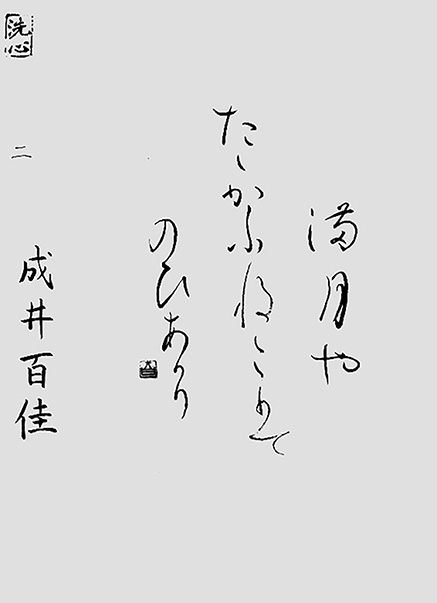 満月や
たゝかふねこ
のひあかり
洗心
二
成井百佳